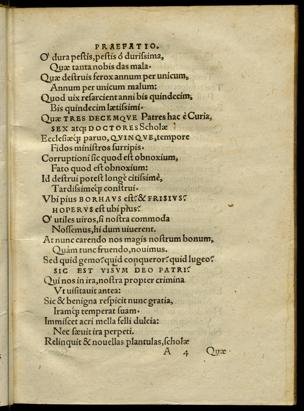 PRAEFATIO.
O' dura pestis, pestis ô durissima,
Quæ tanta nobis das mala.
Quæ destruis ferox annum per unicum,
Annum per unicum malum:
Quod uix resarcient anni bis quindecim,
Bis quindecim lætissimi.
Quæ TRES DECEMQVE Patres hac è Curia,
SEX atq; DOCTORES Scholæ
Ecclesiæq; paruo, QVINQVE, tempore
Fidos ministros surripis.
Corruptioni sic quod est obnoxium,
Fato quod est obnoxium:
Id destrui potest longè citissimè,
Tardissimeq; construi.
Vbi pius BORHAVS est? & FRISIVS?
HOPERVS est ubi pius?
O' utiles uiros, si nostra commoda
Nossemus, hi dum uiuerent.
At nunc carendo nos magis nostrum bonum,
Quàm tunc fruendo, nouimus.
Sed quid gemo? quid conqueror? quid lugeo?
SIC EST VISVM DEO PATRI?
Qui nos in ira, nostra propter crimina
Vt uisitauit antea:
Sic & benigna respicit nunc gratia,
Iramq; temperat suam.
Immiscet acri mella felli dulcia:
Nec sæuit ira perpeti.
Relinquit & nouellas plantulas, scholæ
A 4 Quæ